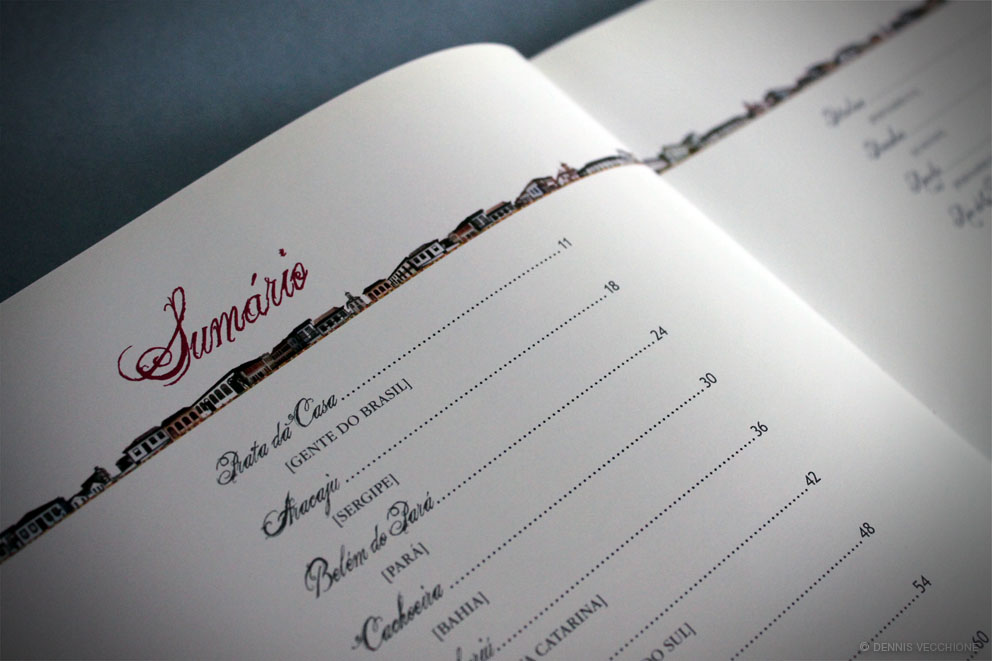 Sumário
Prata da Casa 11
[GENTE DO BRASIL]
Aracaju 18
[SERGIPE]
Belém do Pará 24
[PARÁ]
Cachoeira 30
[BAHIA]
36
CATARINA]
42
DO SUL]
48
54
60
© DENNIS VECCHIONE